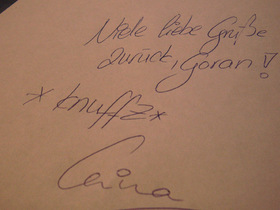 Viele liebe Grüße
zurück, Goran!
*knuffz*